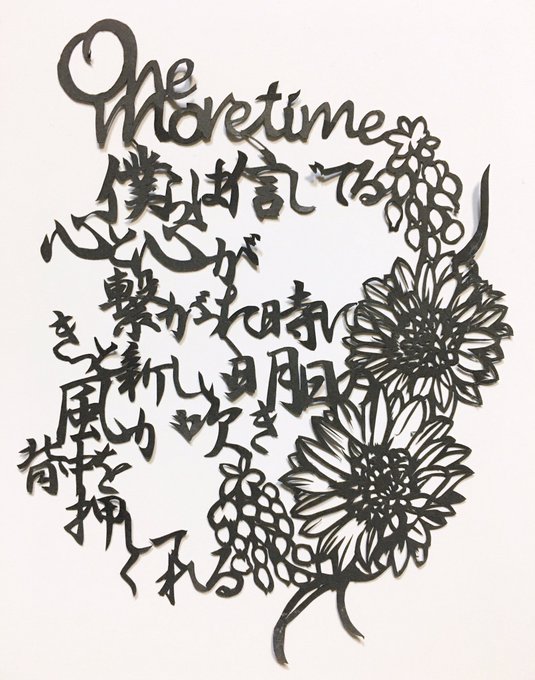 One
more time
僕らは信じてる
心と心が
繋がれ時に
きっと新しい明日の
風が吹き
背中を
押して
くれる